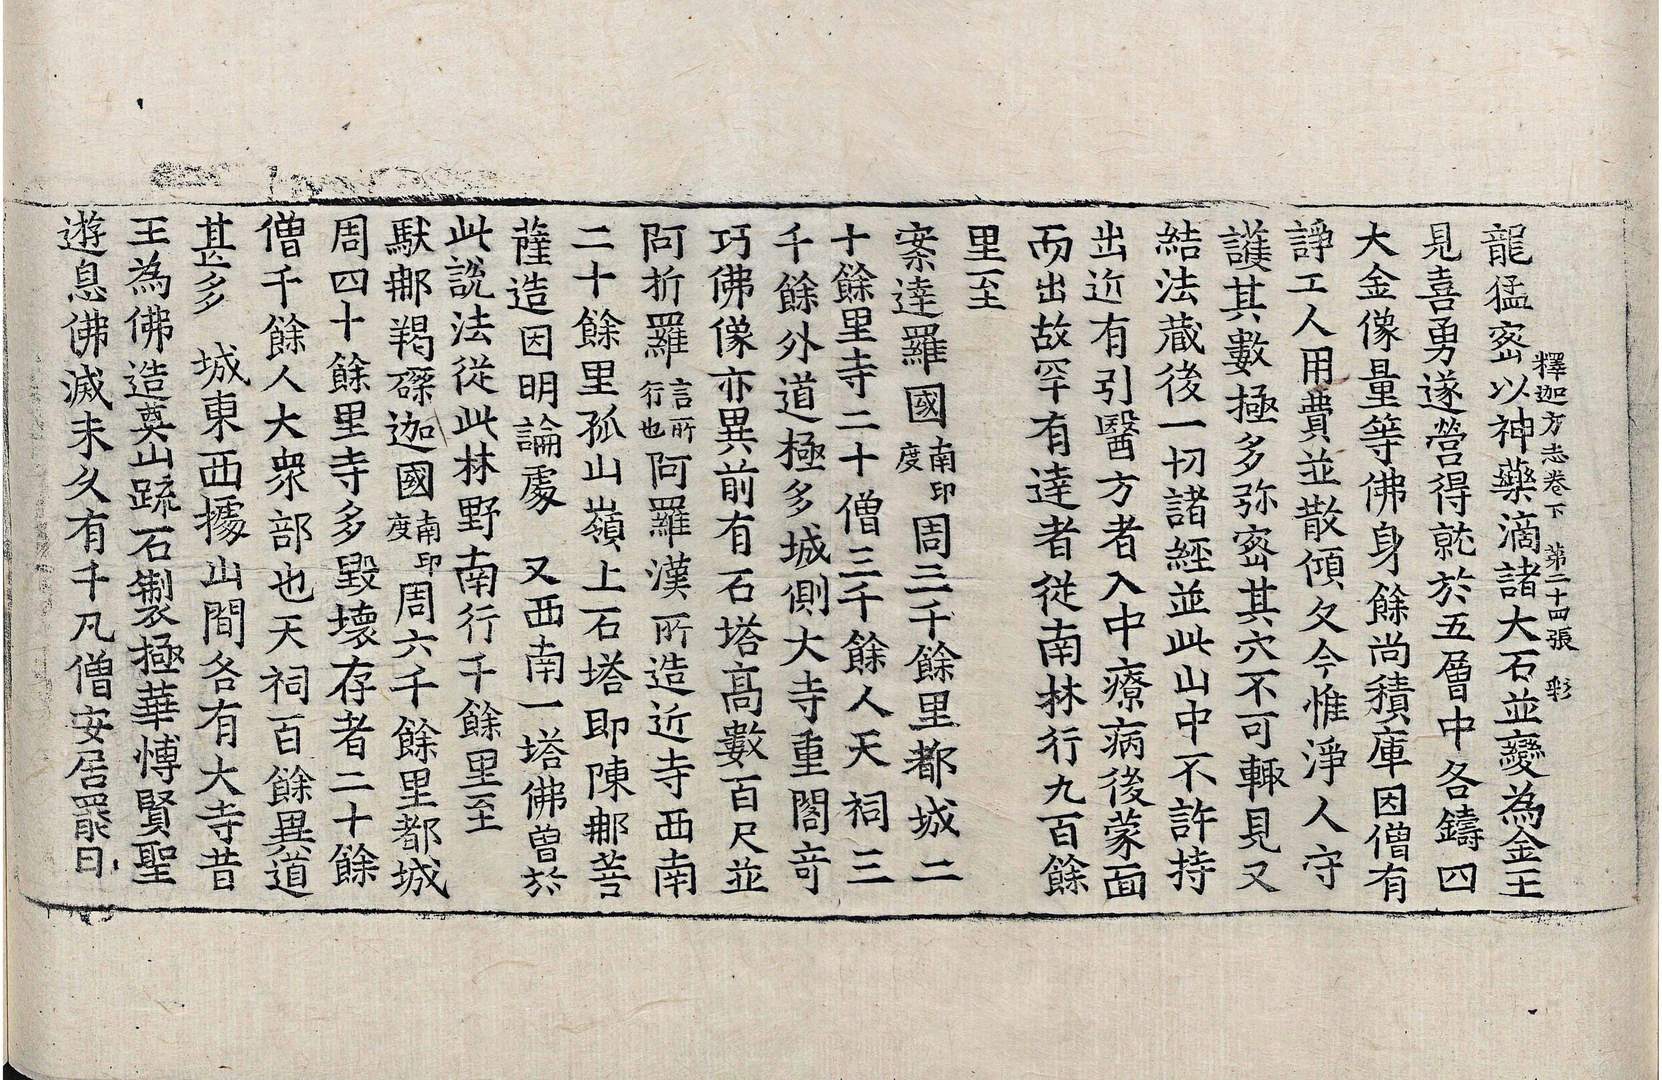 釋迦方志卷下 第二十四張 彩
龍猛密以神藥滴諸大石並變為金王
見喜勇遂營得就於五層中各鑄四
大金像量等佛身餘尚積庫因僧有
諍工人用費並散傾夂今惟淨人守
護其數極多弥密其穴不可輙見又
結法藏後一切諸經並此山中不許持
出近有引醫方者入中療病後蒙面
而出故罕有達者從南林行九百餘
里至
案達羅國南印度周三千餘里都城二
十餘里寺二十僧三千餘人天祠三
千餘外道極多城側大寺重閣竒
巧佛像亦異前有石塔高數百尺並
阿折羅言所行也阿羅漢所造近寺西南
二十餘里孤山嶺上石塔即陳那菩
薩造因明論處 又西南一塔佛曾於
此說法從此林野南行千餘里至
馱那羯磔迦國南印度周六千餘里都城
周四十餘里寺多毀壞存者二十餘
僧千餘人大衆部也天祠百餘異道
甚多 城東西據山間各有大寺昔
王為佛造奠山䟽石製極華博賢聖
遊息佛滅未久有千凡僧安居罷日